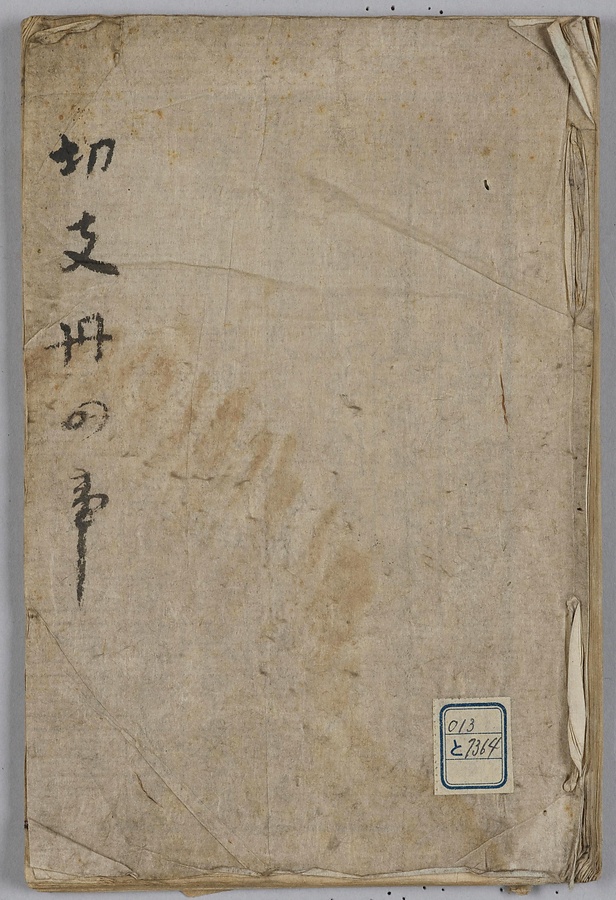 切支丹の事
013
と7364